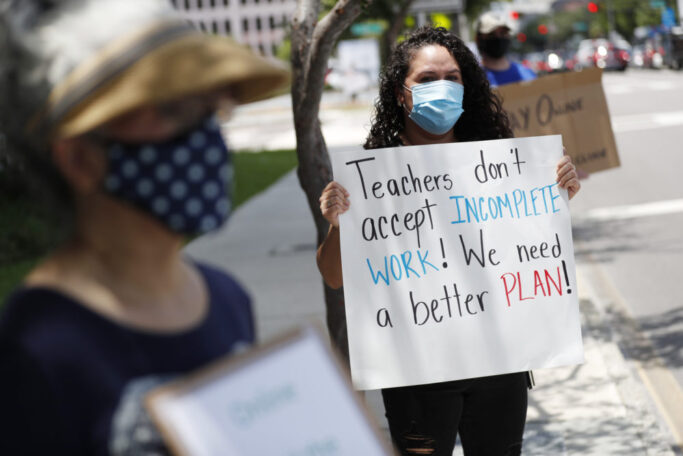 Teachers don't
accept INCOMPLETE
WORK! We need
a better PLAN!
AY ONLINE
Online